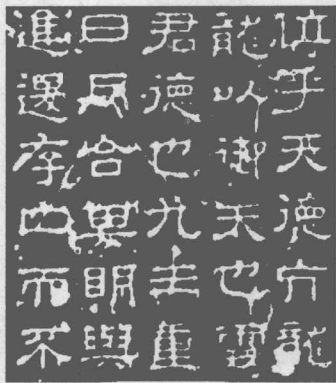 位乎天德亢龍
龍以御天也雲
君德也九三重
日月合其明與
進退存亡而不